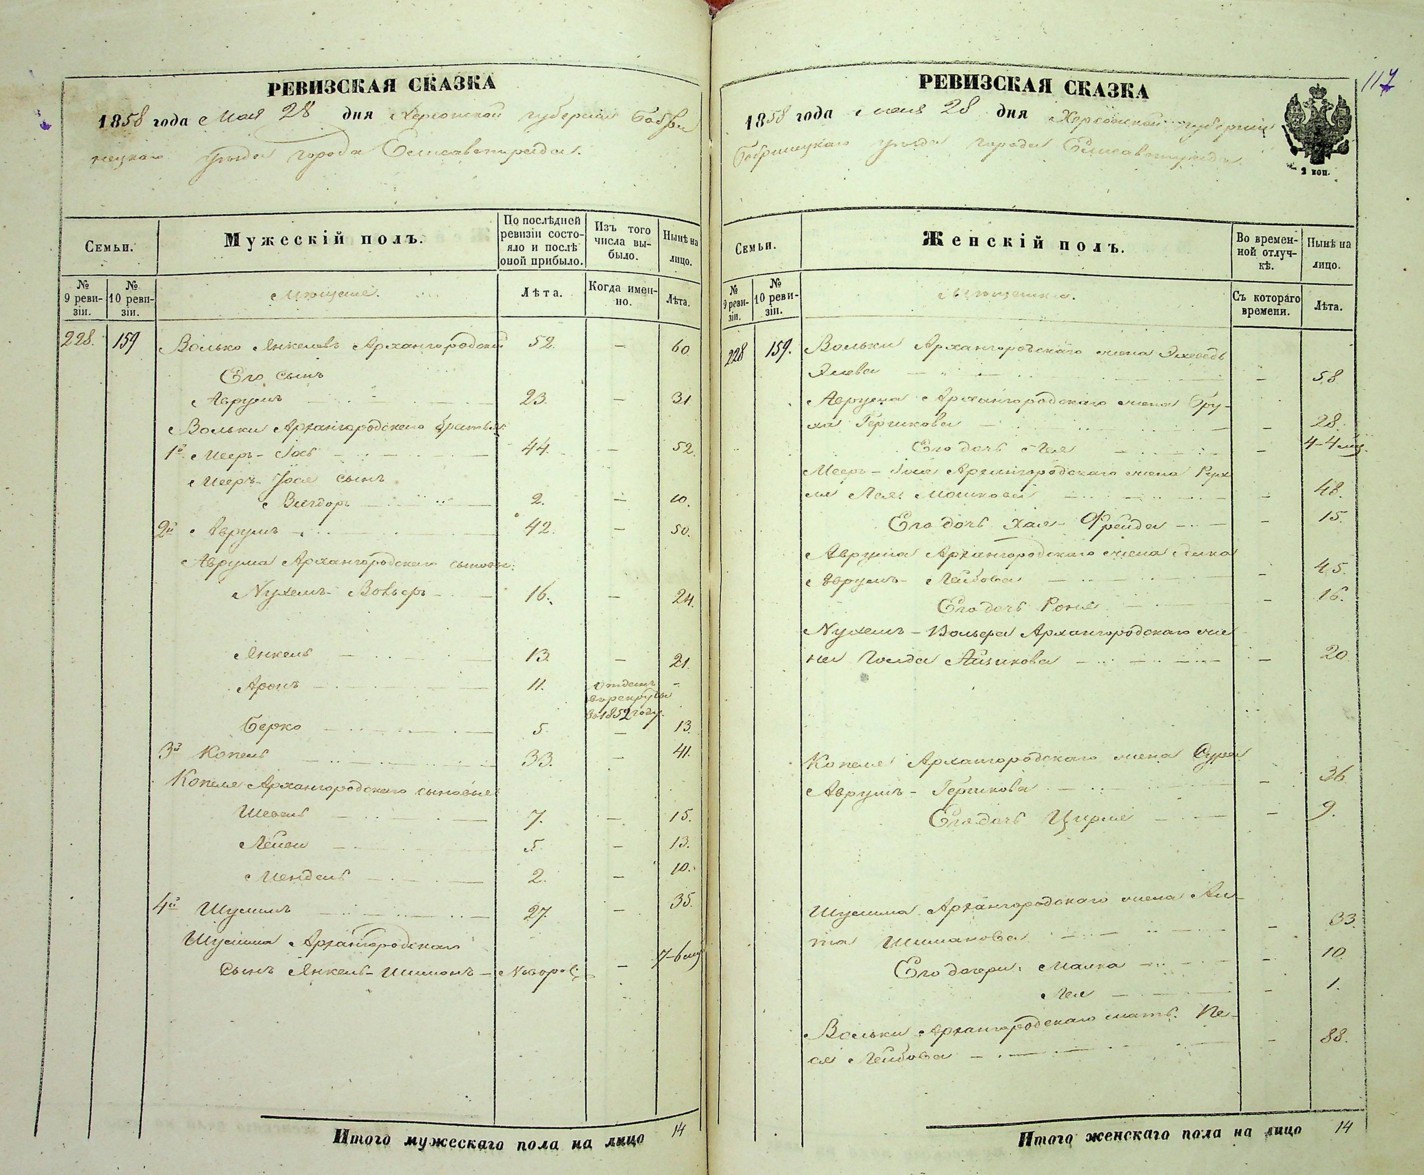 РЕВИЗСКАЯ СКАЗКА
1858 года Мая 28 дня Херсонской губернии Бобри
нецкаго уѣзда города Елисаветграда.
Семьи.
Мужескій полъ.
По послѣдней
ревизіи состо-
яло и послѣ
оной прибыло.
Изъ того
числа вы-
было.
Нынѣ на
лицо.
№
9 реви-
зіи.
№
10 реви-
зіи.
Мѣщане.
Лѣта.
Когда имен-
но.
Лѣта.
228. 159 Волько Янкелевъ Архангородскій 52. — 60
Его сынъ
Аврумъ 23. — 31
Вольки Архангородскаго братья
1й Мееръ-Іось 44. — 52.
Мееръ-Іося сынъ
Вигдоръ 2. — 10.
2й Аврумъ 42. — 50.
Аврума Архангородскаго сыновья:
Нухемъ-Вольфъ 16. — 24.
Янкель 13. — 21.
Аронъ 11. Отданъ
въ рекруты
въ 1852 году. -
Берко 5. — 13.
3й Копель 33. — 41.
Копеля Архангородскаго сыновья
Шевель 7. — 15.
Лейби 5 — 13.
Мендель 2. — 10.
4й Шулимъ 27. — 35.
Шулима Архангородскаго
сынъ Янкель-Шимонъ — Новорож. — 7-6 мѣ
Итого мужескаго пола на лицо 14
117
РЕВИЗСКАЯ СКАЗКА
1858 года Мая 28 дня Херсонской губерніи
Бобринецкаго уѣзда города Елисаветграда.
2 коп.
Семьи.
Женскій полъ.
Во времен-
ной отлуч-
кѣ.
Нынѣ на
лицо.
№
9 реви-
зіи.
№
10 реви-
зіи.
Съ котораго
времени.
Лѣта.
228 159. Вольки Архангородскаго жена
— 58
Аврума Архангородскаго жена Бру-
ха Гершкова — 28.
Его дочь Лея — 4-4 мѣ.
Мееръ-Іося Архангородскаго жена Рух
ля Лея Мошкова — 48.
Его дочь Хая-Фрейда — 15.
Аврума Архангородскаго жена
Аврумъ-Лейбова — 45.
Его дочь Роня — 16.
Нухемъ-Вольфа Архангородскаго же
на Голда Айзикова — 20
Копеля Архангородскаго жена Сура
Аврумъ-Гершкова — 36
Его дочь Цирля — 9.
Шулима Архангородскаго жена Ги-
та Шимонова — 33
Его дочери: Малка — 10.
Лея — 1.
Вольки Архангородскаго мать Пе-
ся Лейбова — 88.
Итого женскаго пола на лицо 14